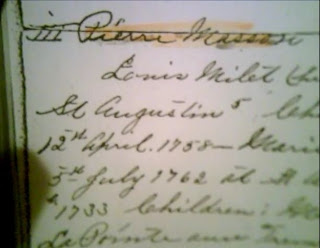 iii Pierre
Louis Milet
St Augustin 5 Ch
12th April. 1758 — Mari
5th July 1762 at St
1733 Children:
La Pointe aux Trem